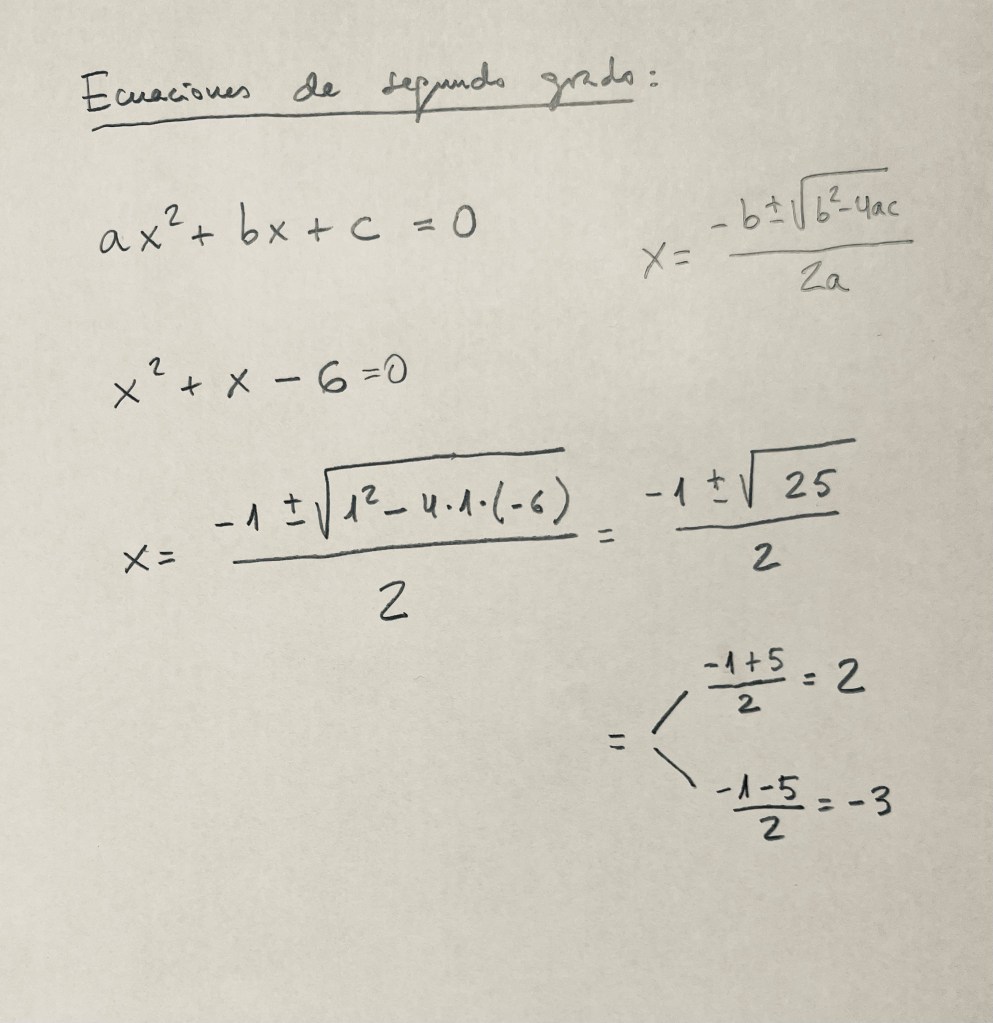 Ecuaciones de segundo grado:
ax² + bx + c = 0
x = (-b ± √(b²-4ac)) / 2a
x² + x - 6 = 0
x = (-1 ± √(1² - 4·1·(-6))) / 2 = (-1 ± √25) / 2
= < (-1+5)/2 = 2
(-1-5)/2 = -3